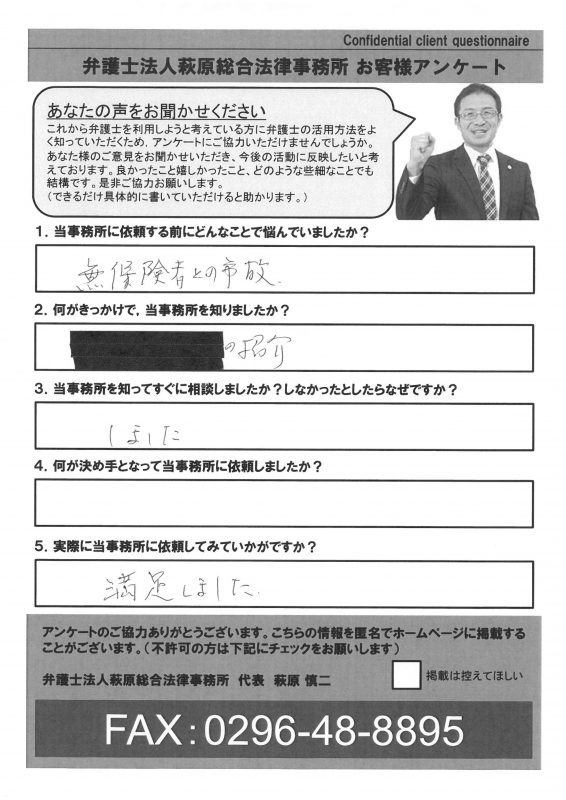 Confidential client questionnaire
弁護士法人萩原総合法律事務所 お客様アンケート
あなたの声をお聞かせください
これから弁護士を利用しようと考えている方に弁護士の活用方法をよ
く知っていただくため，アンケートにご協力いただけませんでしょうか。
あなた様のご意見をお聞かせいただき、今後の活動に反映したいと考
えております。良かったこと嬉しかったこと、どのような些細なことでも
結構です。是非ご協力お願いします。
（できるだけ具体的に書いていただけると助かります。）
1．当事務所に依頼する前にどんなことで悩んでいましたか？
無保険者との事故.
2．何がきっかけで，当事務所を知りましたか？
の紹介
3．当事務所を知ってすぐに相談しましたか？しなかったとしたらなぜですか？
しました
4．何が決め手となって当事務所に依頼しましたか？
5．実際に当事務所に依頼してみていかがですか？
満足しました.
アンケートのご協力ありがとうございます。こちらの情報を匿名でホームページに掲載する
ことがございます。（不許可の方は下記にチェックをお願いします）
弁護士法人萩原総合法律事務所 代表 萩原 慎二
掲載は控えてほしい
FAX：0296-48-8895